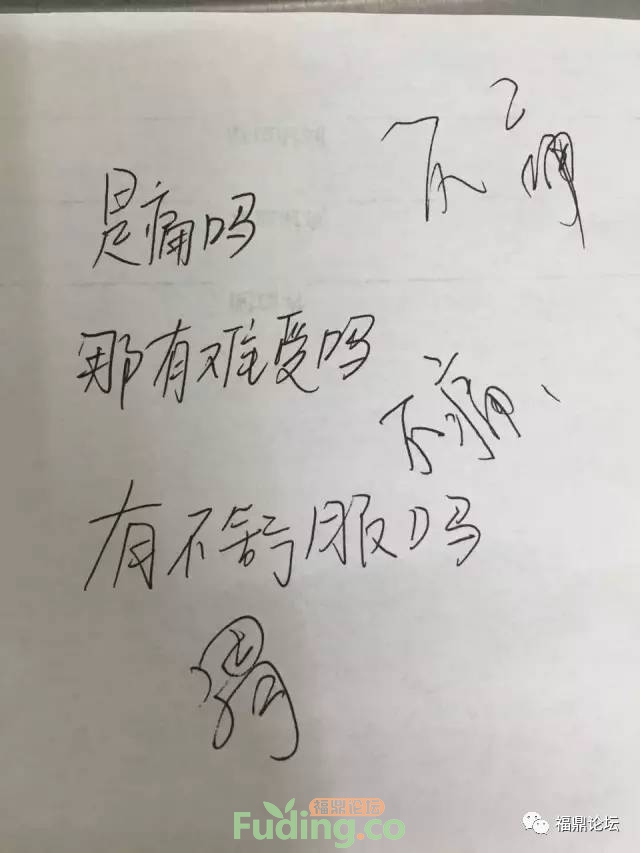 是痛吗
那有难受吗
不痛、
有不舒服吗
福鼎论坛
Fuding.co
福鼎论坛